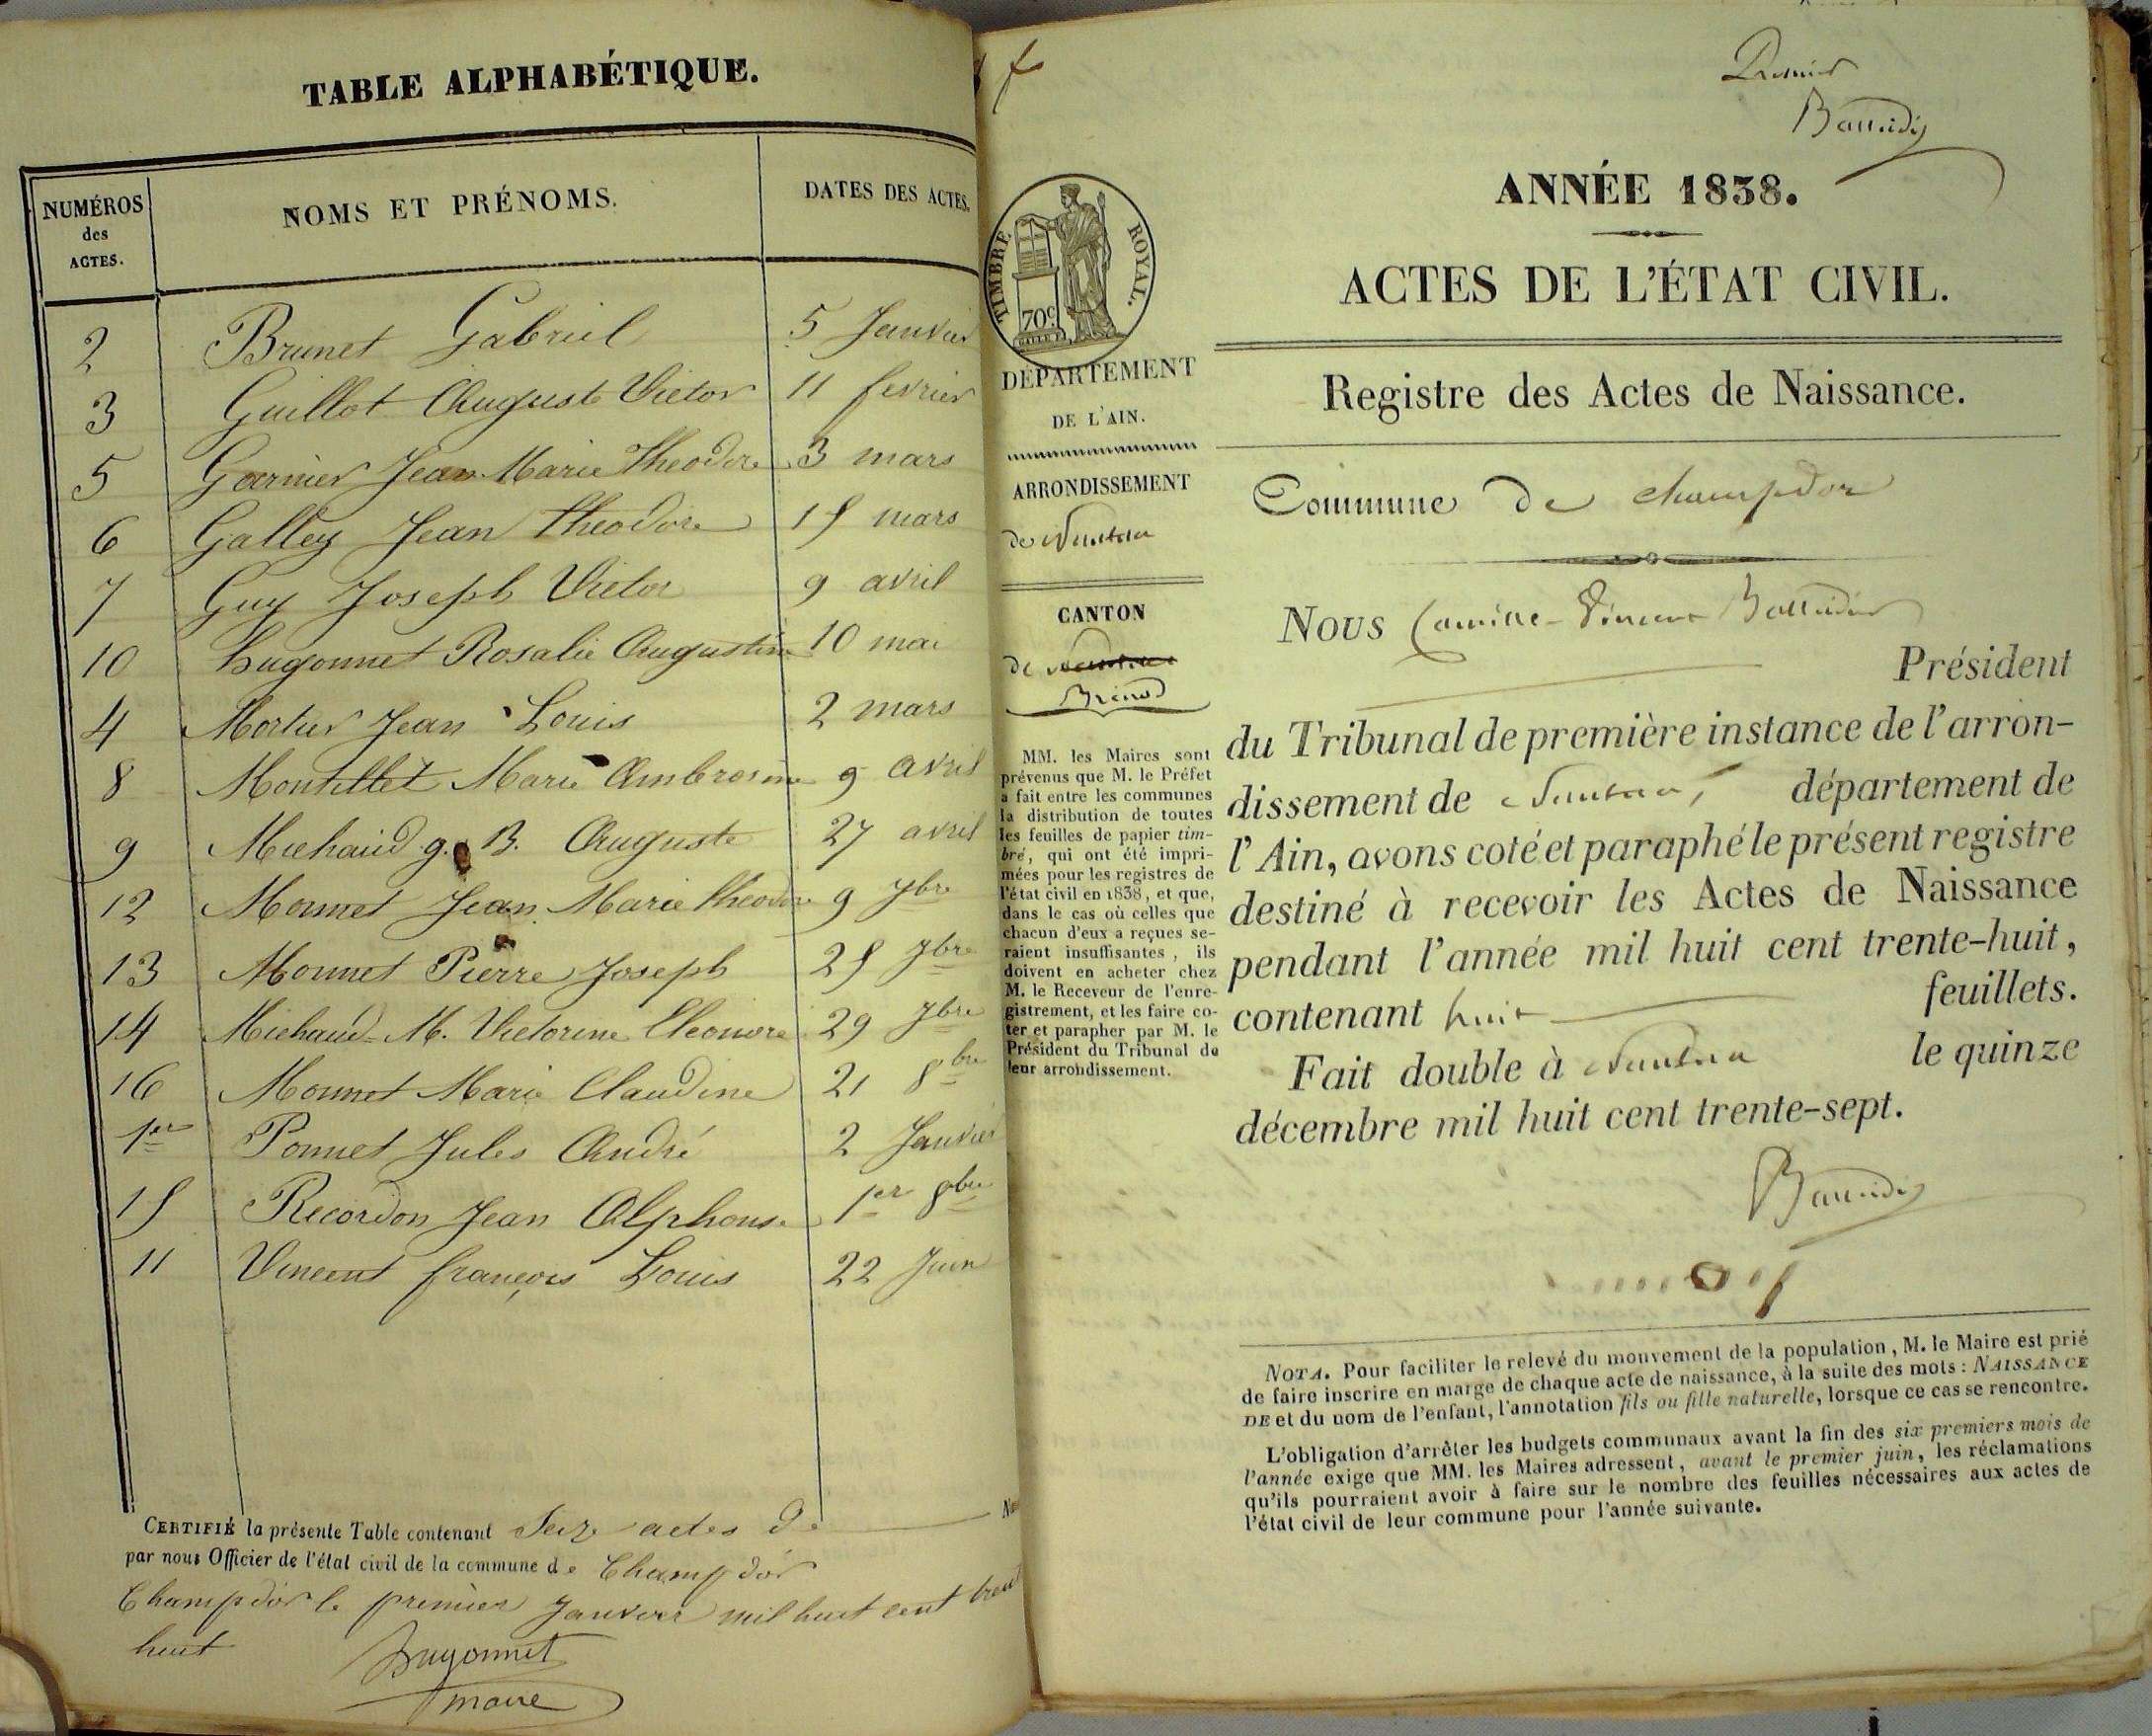 TABLE ALPHABÉTIQUE.
NUMÉROS des ACTES. NOMS ET PRÉNOMS. DATES DES ACTES.
2 Brunet Gabriel 5 Janvier
3 Guillot Auguste Victor 11 fevrier
5 Garnier Jean Marie theodore 3 mars
6 Galley Jean theodore 15 mars
7 Guy Joseph Victor 9 avril
10 hugonnet Rosalie Augustine 10 mai
4 Mortier Jean Louis 2 mars
8 Montillet Marie Ambrosine 9 avril
9 Michaud g. B. Auguste 27 avril
12 Monnet Jean Marie theodore 9 7bre
13 Monnet Pierre Joseph 25 7bre
14 Michaud M. Victorine Eleonore 29 7bre
16 Monnet Marie Claudine 21 8bre
1er Ponnet Jules André 2 Janvier
15 Recordon Jean Alphonse 1er 8bre
11 Vincent françois Louis 22 Juin
CERTIFIÉ la présente Table contenant Seize actes de
par nous Officier de l'état civil de la commune de Champdor
Champdor le premier Janvier mil huit cent trent
huit
hugonnet
maire
Premier
ANNÉE 1838.
ACTES DE L'ÉTAT CIVIL.
Registre des Actes de Naissance.
TIMBRE ROYAL.
70c
DÉPARTEMENT
DE L'AIN.
ARRONDISSEMENT
de Nantua
CANTON
de Nantua
Brénod
MM. les Maires sont
prévenus que M. le Préfet
a fait entre les communes
la distribution de toutes
les feuilles de papier tim-
bré, qui ont été impri-
mées pour les registres de
l'état civil en 1838, et que,
dans le cas où celles que
chacun d'eux a reçues se-
raient insuffisantes, ils
doivent en acheter chez
M. le Receveur de l'enre-
gistrement, et les faire co-
ter et parapher par M. le
Président du Tribunal de
leur arrondissement.
Commune de champdor
Nous Camille-Vincent
Président
du Tribunal de première instance de l'arron-
dissement de Nantua, département de
l'Ain, avons coté et paraphé le présent registre
destiné à recevoir les Actes de Naissance
pendant l'année mil huit cent trente-huit,
contenant huit feuillets.
Fait double à Nantua le quinze
décembre mil huit cent trente-sept.
NOTA. Pour faciliter le relevé du mouvement de la population, M. le Maire est prié
de faire inscrire en marge de chaque acte de naissance, à la suite des mots : NAISSANCE
DE et du nom de l'enfant, l'annotation fils ou fille naturelle, lorsque ce cas se rencontre.
L'obligation d'arrêter les budgets communaux avant la fin des six premiers mois de
l'année exige que MM. les Maires adressent, avant le premier juin, les réclamations
qu'ils pourraient avoir à faire sur le nombre des feuilles nécessaires aux actes de
l'état civil de leur commune pour l'année suivante.